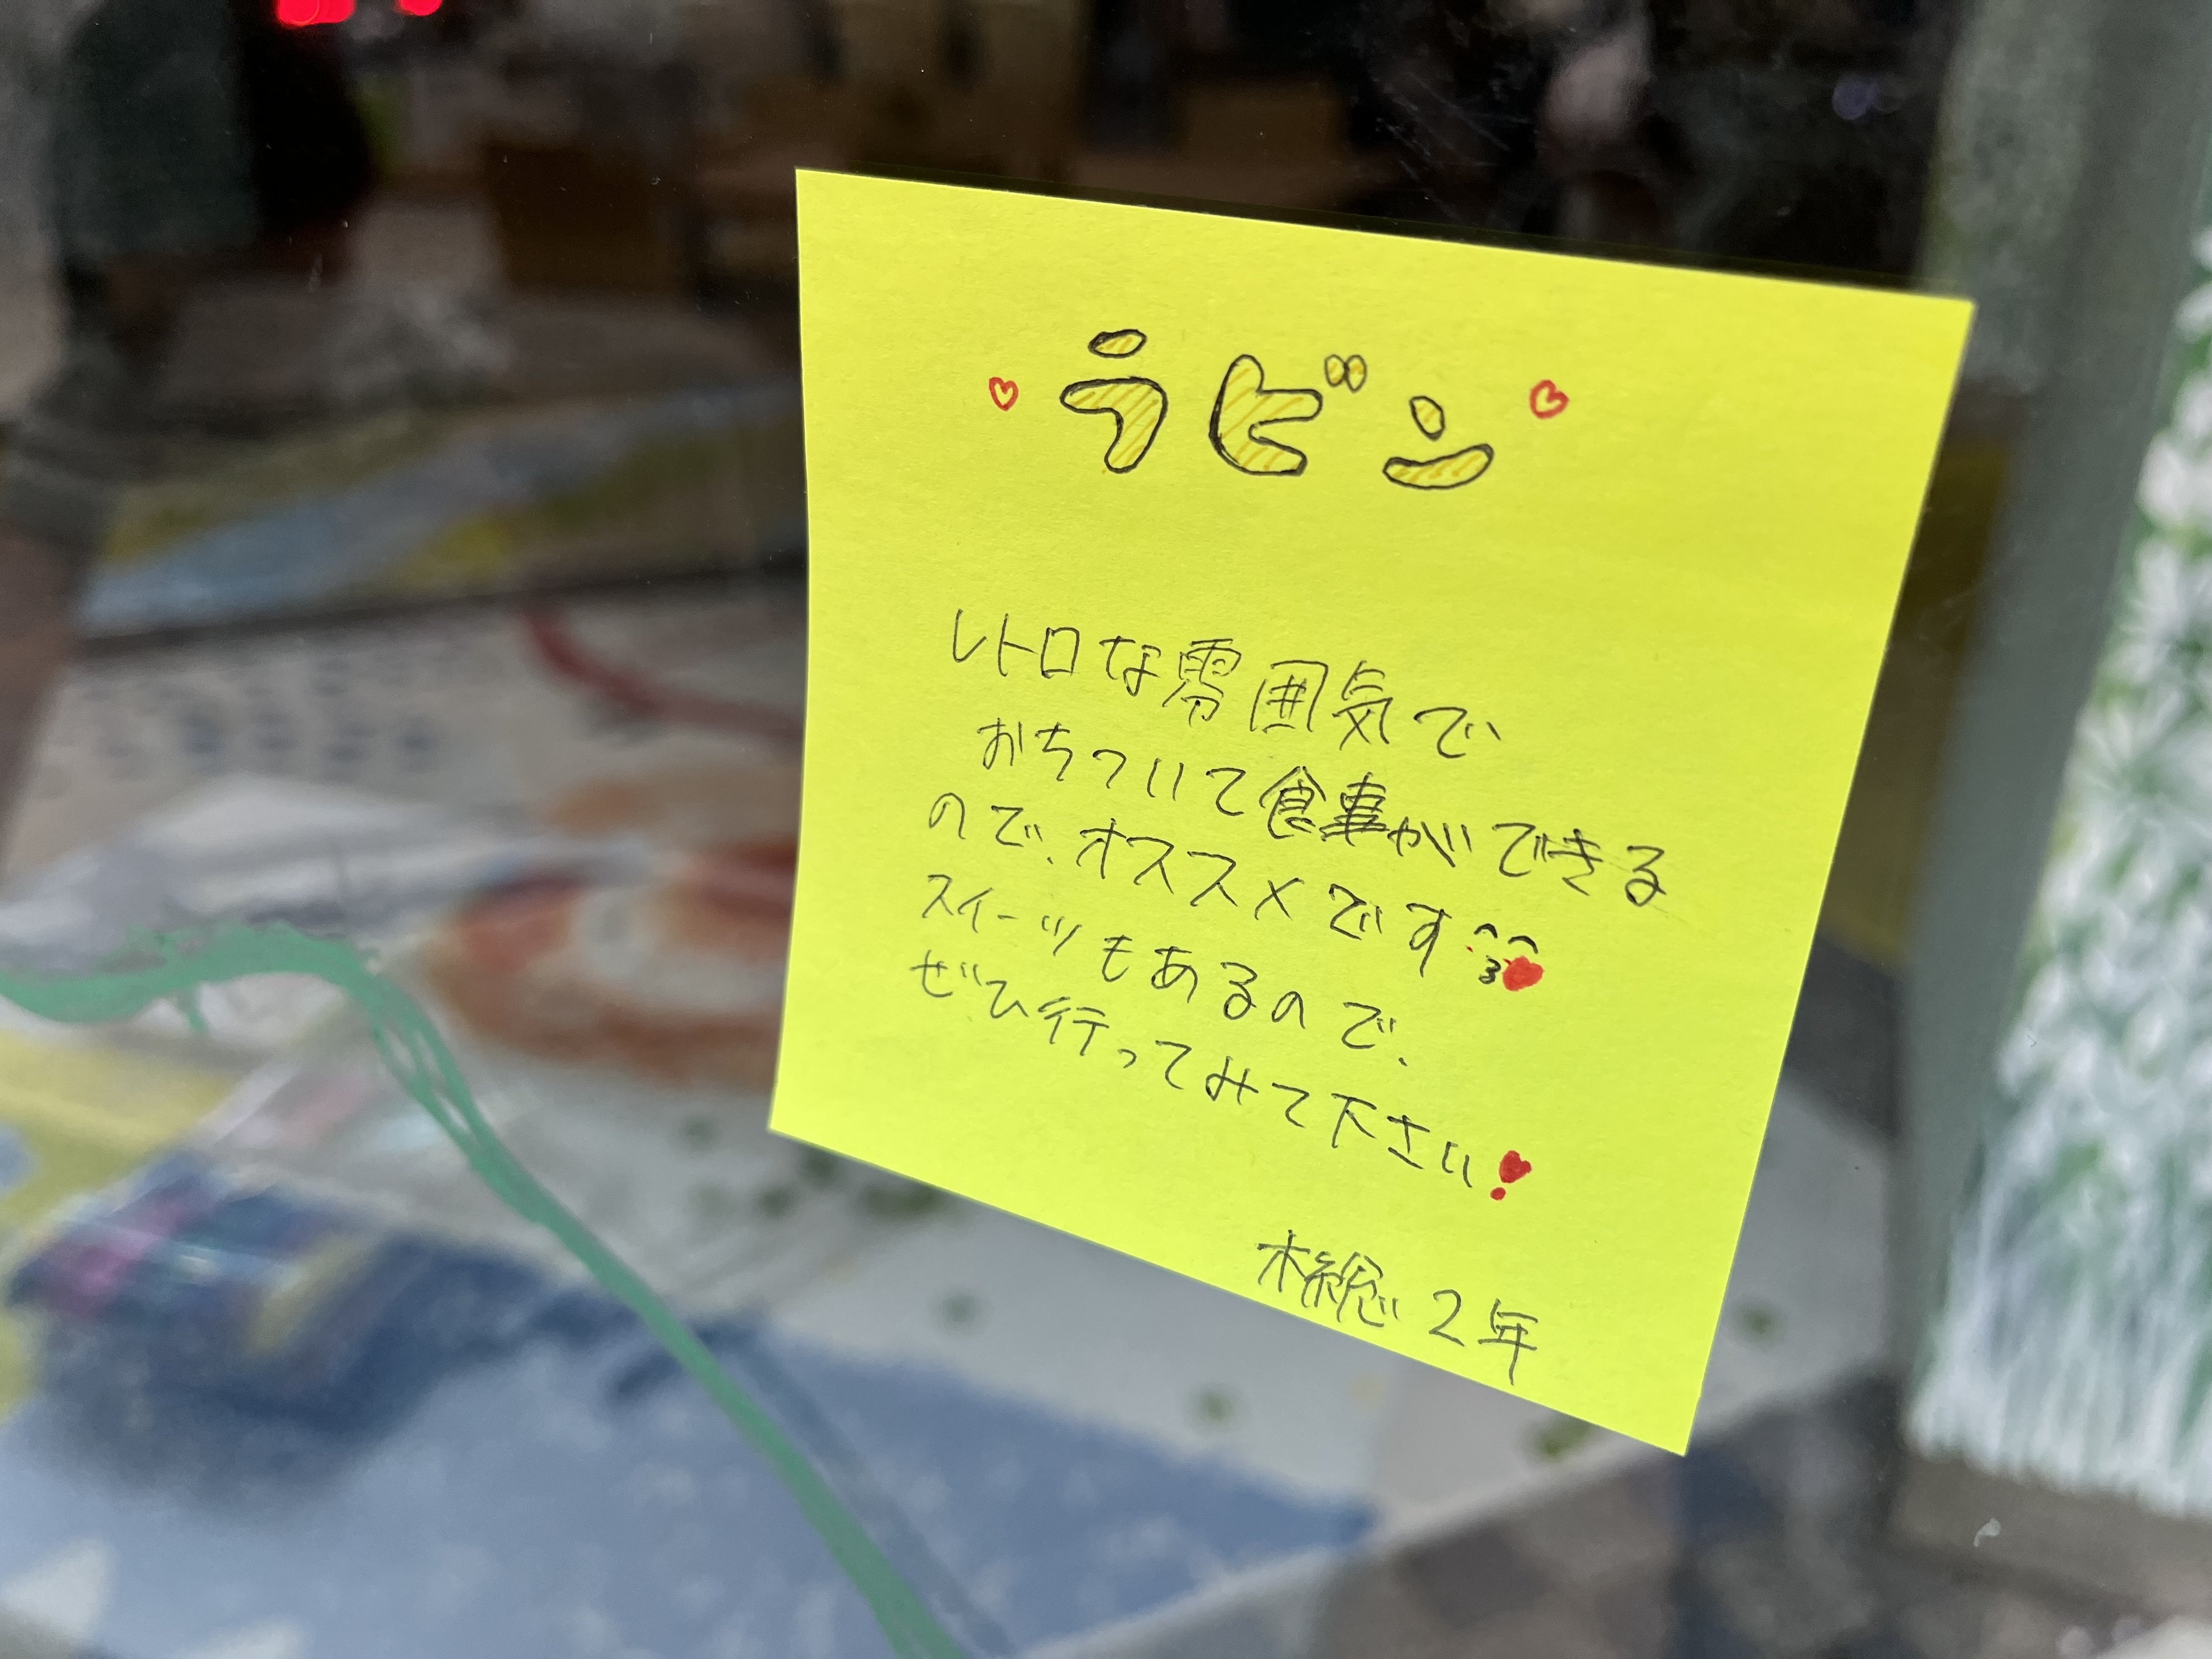 ♡ラビン♡
レトロな雰囲気で
おちついて食事ができる
ので、オススメです
スイーツもあるので、
ぜひ行ってみて下さい❣
木総 2年